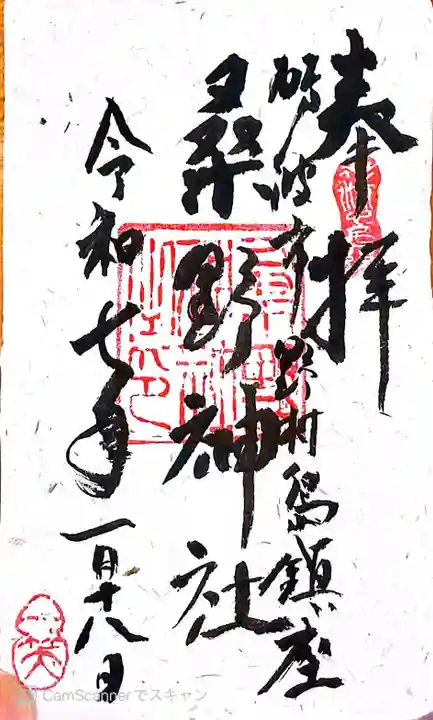 奉拝
砺波市野村島鎮座
桑野神社
令和七年一月十八日
CamScannerでスキャン